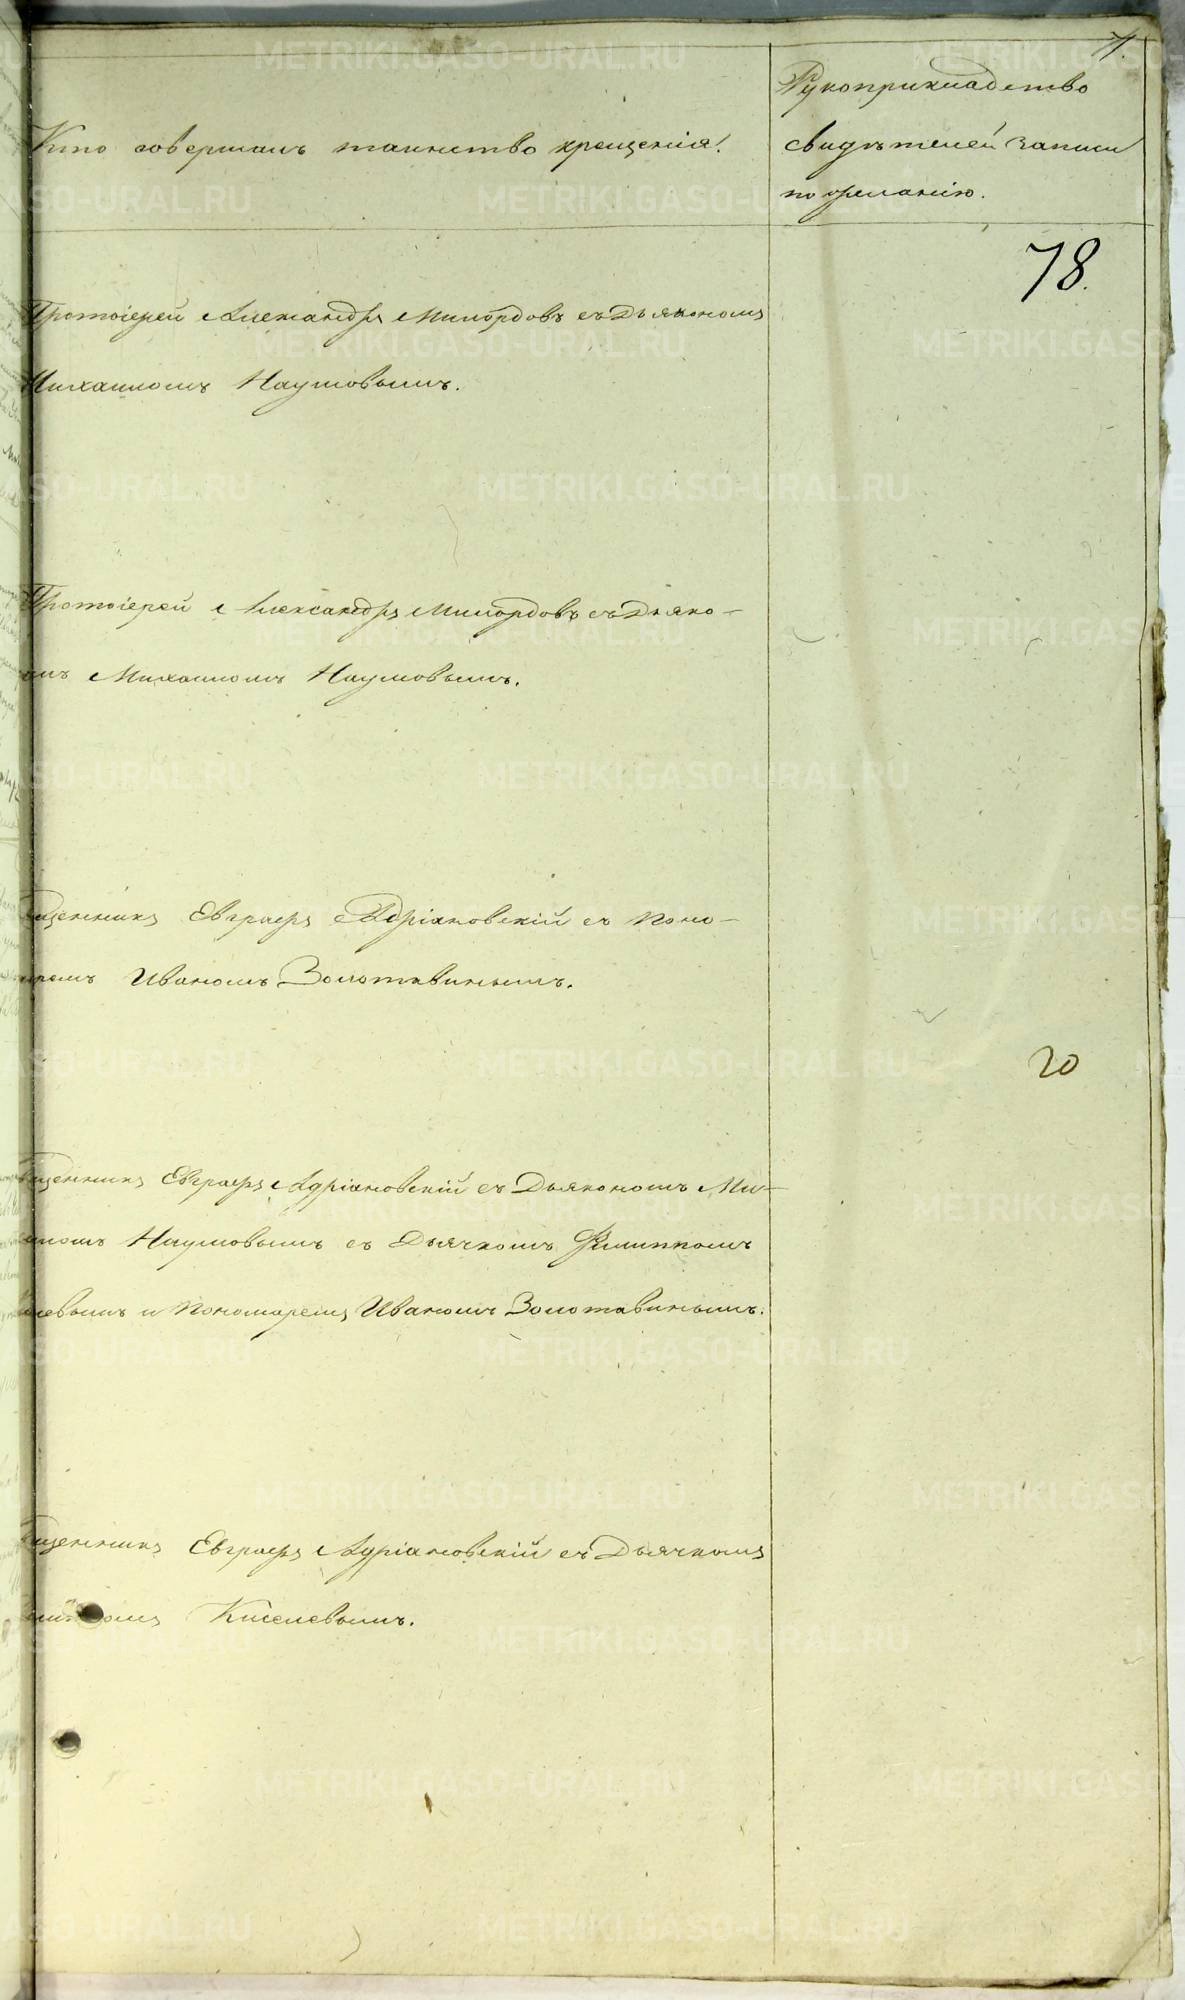 7.
Кто совершалъ таинство крещенія.
Рукоприкладство
свидѣтелей записи
по желанію.
78.
Протоіерей Александръ Милордовъ съ Дьякономъ
Михаиломъ Наумовымъ.
Протоіерей Александръ Милордовъ съ Дьяко-
омъ Михаиломъ Наумовымъ.
щенникъ Евграфъ Адріановскій съ Поно-
аремъ Иваномъ Золотавинымъ.
20
щенникъ Евграфъ Адріановскій съ Дьякономъ Ми-
иломъ Наумовымъ съ Дьячкомъ Филиппомъ
левымъ и Пономаремъ Иваномъ Золотавинымъ.
щенникъ Евграфъ Адріановскій съ Дьячкомъ
Киселевымъ.
METRIKI.GASO-URAL.RU